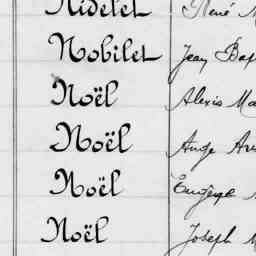 Nidelet René
Nobilet Jean Bap
Noël Alexis Ma
Noël Ange
Noël Eugène
Noël Joseph